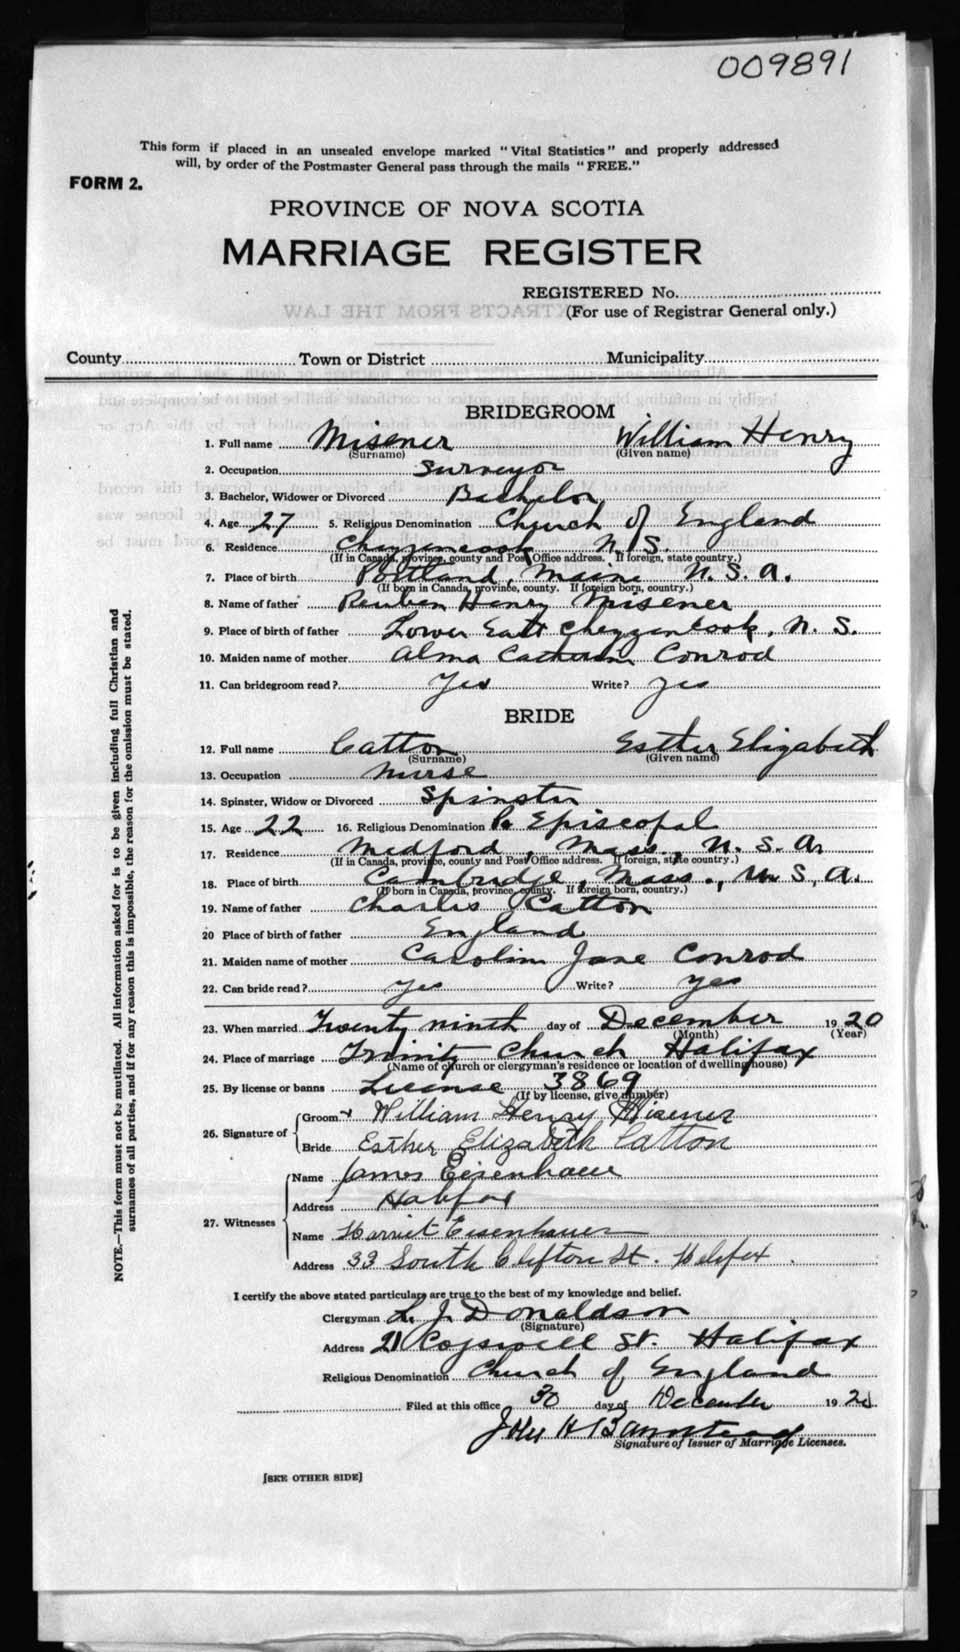 009891
This form if placed in an unsealed envelope marked "Vital Statistics" and properly addressed
will, by order of the Postmaster General pass through the mails "FREE."
FORM 2.
PROVINCE OF NOVA SCOTIA
MARRIAGE REGISTER
REGISTERED No.
(For use of Registrar General only.)
County Town or District Municipality
BRIDEGROOM
1. Full name Misener William Henry
(Surname) (Given name)
2. Occupation Surveyor
3. Bachelor, Widower or Divorced Bachelor
4. Age 27 5. Religious Denomination Church of England
6. Residence Chezzencook N.S.
(If in Canada, province, county and Post Office address. If foreign, state country.)
7. Place of birth Portland, Maine U.S.A.
(If born in Canada, province, county. If foreign born, country.)
8. Name of father Reuben Henry Misener
9. Place of birth of father Lower East Chezzencook, N.S.
10. Maiden name of mother Alma Catherine Conrod
11. Can bridegroom read? Yes Write? yes
BRIDE
12. Full name Catton Esther Elizabeth
(Surname) (Given name)
13. Occupation nurse
14. Spinster, Widow or Divorced Spinster
15. Age 22 16. Religious Denomination Episcopal
17. Residence Medford, Mass., U.S.A.
(If in Canada, province, county and Post Office address. If foreign, state country.)
18. Place of birth Cambridge, Mass., U.S.A.
(If born in Canada, province, county. If foreign born, country.)
19. Name of father Charles Catton
20 Place of birth of father England
21. Maiden name of mother Carolin Jane Conrod
22. Can bride read? yes Write? yes
23. When married Twenty ninth day of December 1920
(Month) (Year)
24. Place of marriage Trinity Church Halifax
(Name of church or clergyman's residence or location of dwelling house)
25. By license or banns License 3869
(If by license, give number)
26. Signature of
Groom William Henry Misener
Bride Esther Elizabeth Catton
27. Witnesses
Name James Eisenhauer
Address Halifax
Name Harriet Eisenhauer
Address 33 South Clifton St. Halifax
I certify the above stated particulars are true to the best of my knowledge and belief.
Clergyman L. J. Donaldson
(Signature)
Address 21 Cogswell St. Halifax
Religious Denomination Church of England
Filed at this office 30 day of December 1920
Signature of Issuer of Marriage Licenses.
[SEE OTHER SIDE]
NOTE.—This form must not be mutilated. All information asked for is to be given including full Christian and
surnames of all parties, and if for any reason this is impossible, the reason for the omission must be stated.